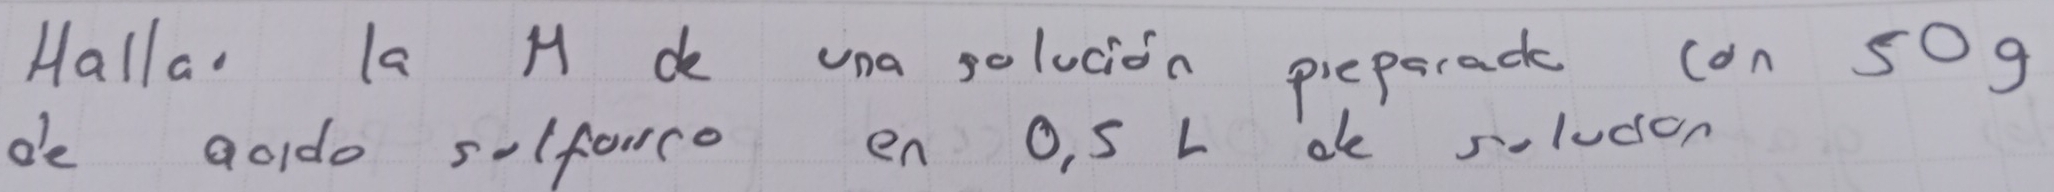 Hallar la M de una solución preparada con 50g
de acido sulfourco en 0,5 L de solucion